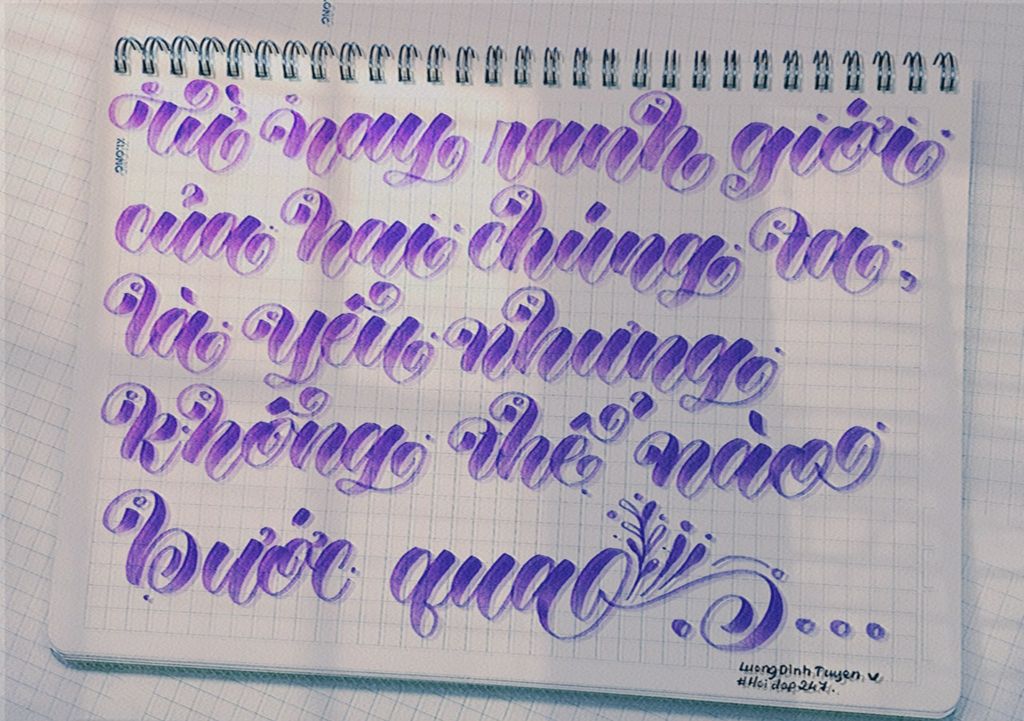 từ nay ranh giới
của hai chúng ta,
là yêu nhưng
không thể nào
bước qua...
LuongDinhTuyen
#Hoidap247.
XLONG
XLONG